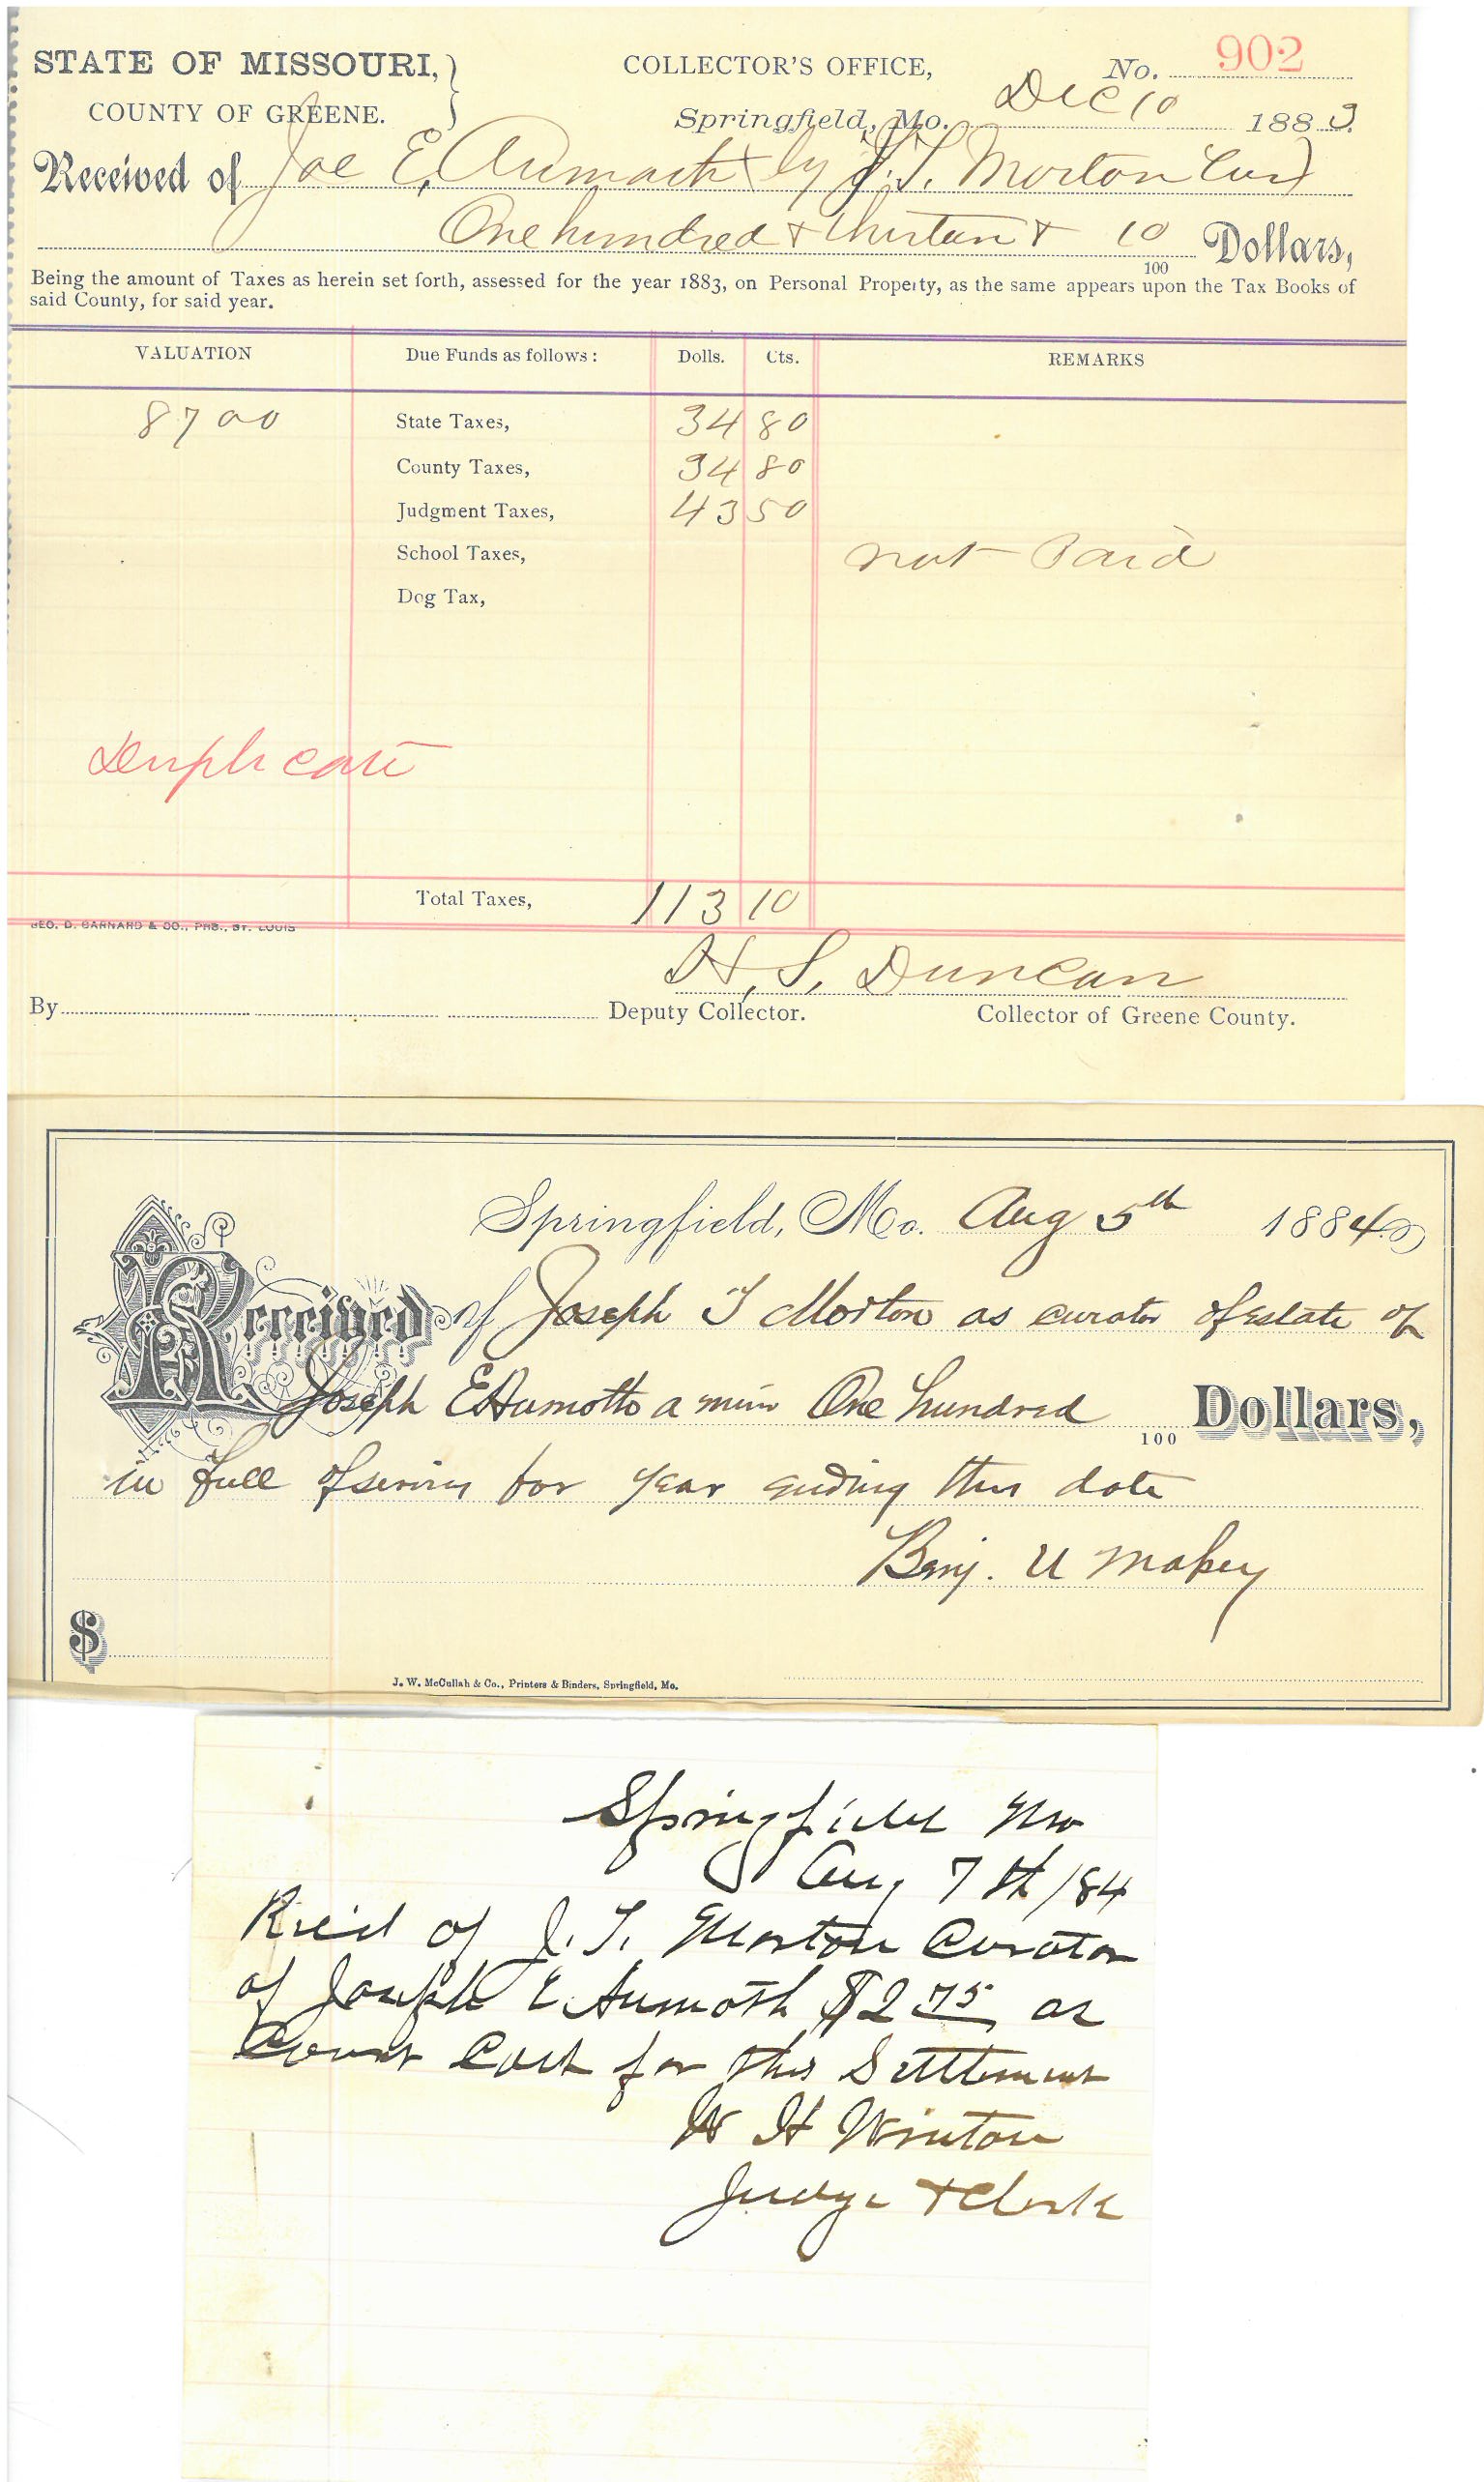 STATE OF MISSOURI, } COLLECTOR'S OFFICE, No. 902
COUNTY OF GREENE. Springfield, Mo. Dec 10 1883.
Received of Joe E, Aumoth by J. T. Morton Cur)
One hundred & thirteen & 10/100 Dollars,
Being the amount of Taxes as herein set forth, assessed for the year 1883, on Personal Property, as the same appears upon the Tax Books of
said County, for said year.
VALUATION Due Funds as follows: Dolls. Cts. REMARKS
8700 State Taxes, 34 80
County Taxes, 34 80
Judgment Taxes, 43 50
School Taxes, not Paid
Dog Tax,
Duplicate
Total Taxes, 113 10
GEO. D. BARNARD & CO., PRS., ST. LOUIS
H. S. Duncan
By Deputy Collector. Collector of Greene County.
Springfield, Mo. Aug 5th 1884
Received of Joseph T Morton as curator of estate of
Joseph E Aumoth a minor One hundred /100 Dollars,
in full of services for year ending this date
Benj. U Massey
$
J. W. McCullah & Co., Printers & Binders, Springfield, Mo.
Springfield Mo
Aug 7th /84
Rec'd of J. T. Morton Curator
of Joseph E. Aumoth $2 75 as
Court Cost for this Settlement
W H Winton
Judge & Clerk